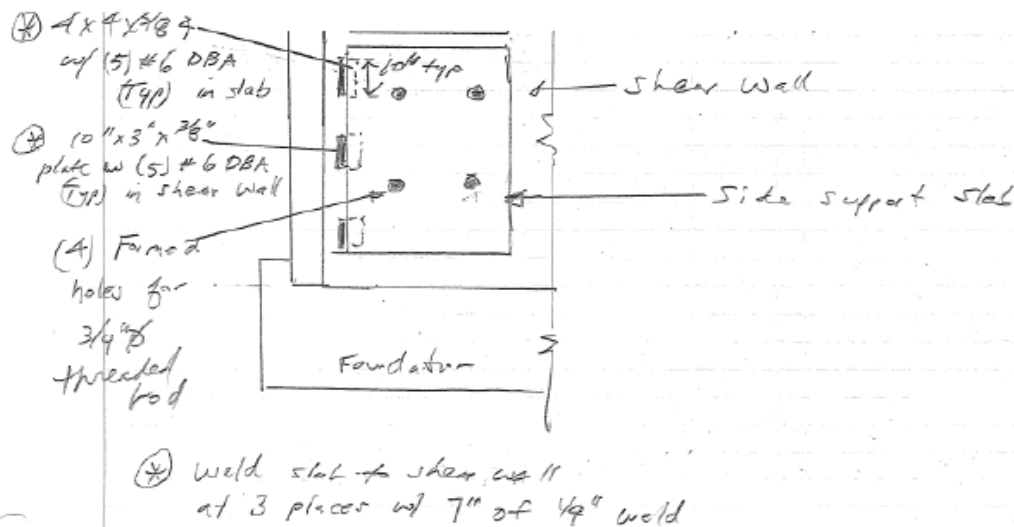 * 4x4x3/8 4
w/ (5) #6 DBA
(Typ) in slab
* 10"x3"x3/8"
plate w (5) #6 DBA
(Typ) in shear wall
(4) Formed
holes for
3/4"Ø
threaded
rod
10" typ
Shear Wall
Side support slab
Foundation
* Weld slab to shear wall
at 3 places w/ 7" of 1/4" weld